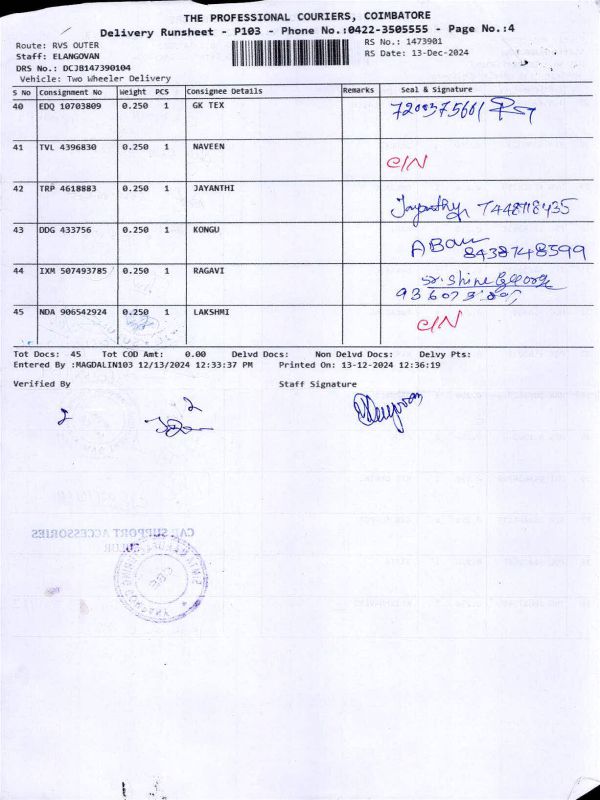 THE PROFESSIONAL COURIERS, COIMBATORE
Delivery Runsheet - P103 - Phone No.:0422-3505555 - Page No.:4
Route: RVS OUTER
RS No.: 1473901
Staff: ELANGOVAN
RS Date: 13-Dec-2024
DRS No.: DCJB147390104
Vehicle: Two Wheeler Delivery
S No Consignment No Weight PCS Consignee Details Remarks Seal & Signature
40 EDQ 10703809 0.250 1 GK TEX
41 TVL 4396830 0.250 1 NAVEEN C/N
42 TRP 4618883 0.250 1 JAYANTHI 7448718435
43 DDG 433756 0.250 1 KONGU 8438748599
44 IXM 507493785 0.250 1 RAGAVI Sr. Shine George
45 NDA 906542924 0.250 1 LAKSHMI C/N
Tot Docs: 45 Tot COD Amt: 0.00 Delvd Docs: Non Delvd Docs: Delvy Pts:
Entered By :MAGDALIN103 12/13/2024 12:33:37 PM Printed On: 13-12-2024 12:36:19
Verified By Staff Signature
CAR SUPPORT ACCESSORIES